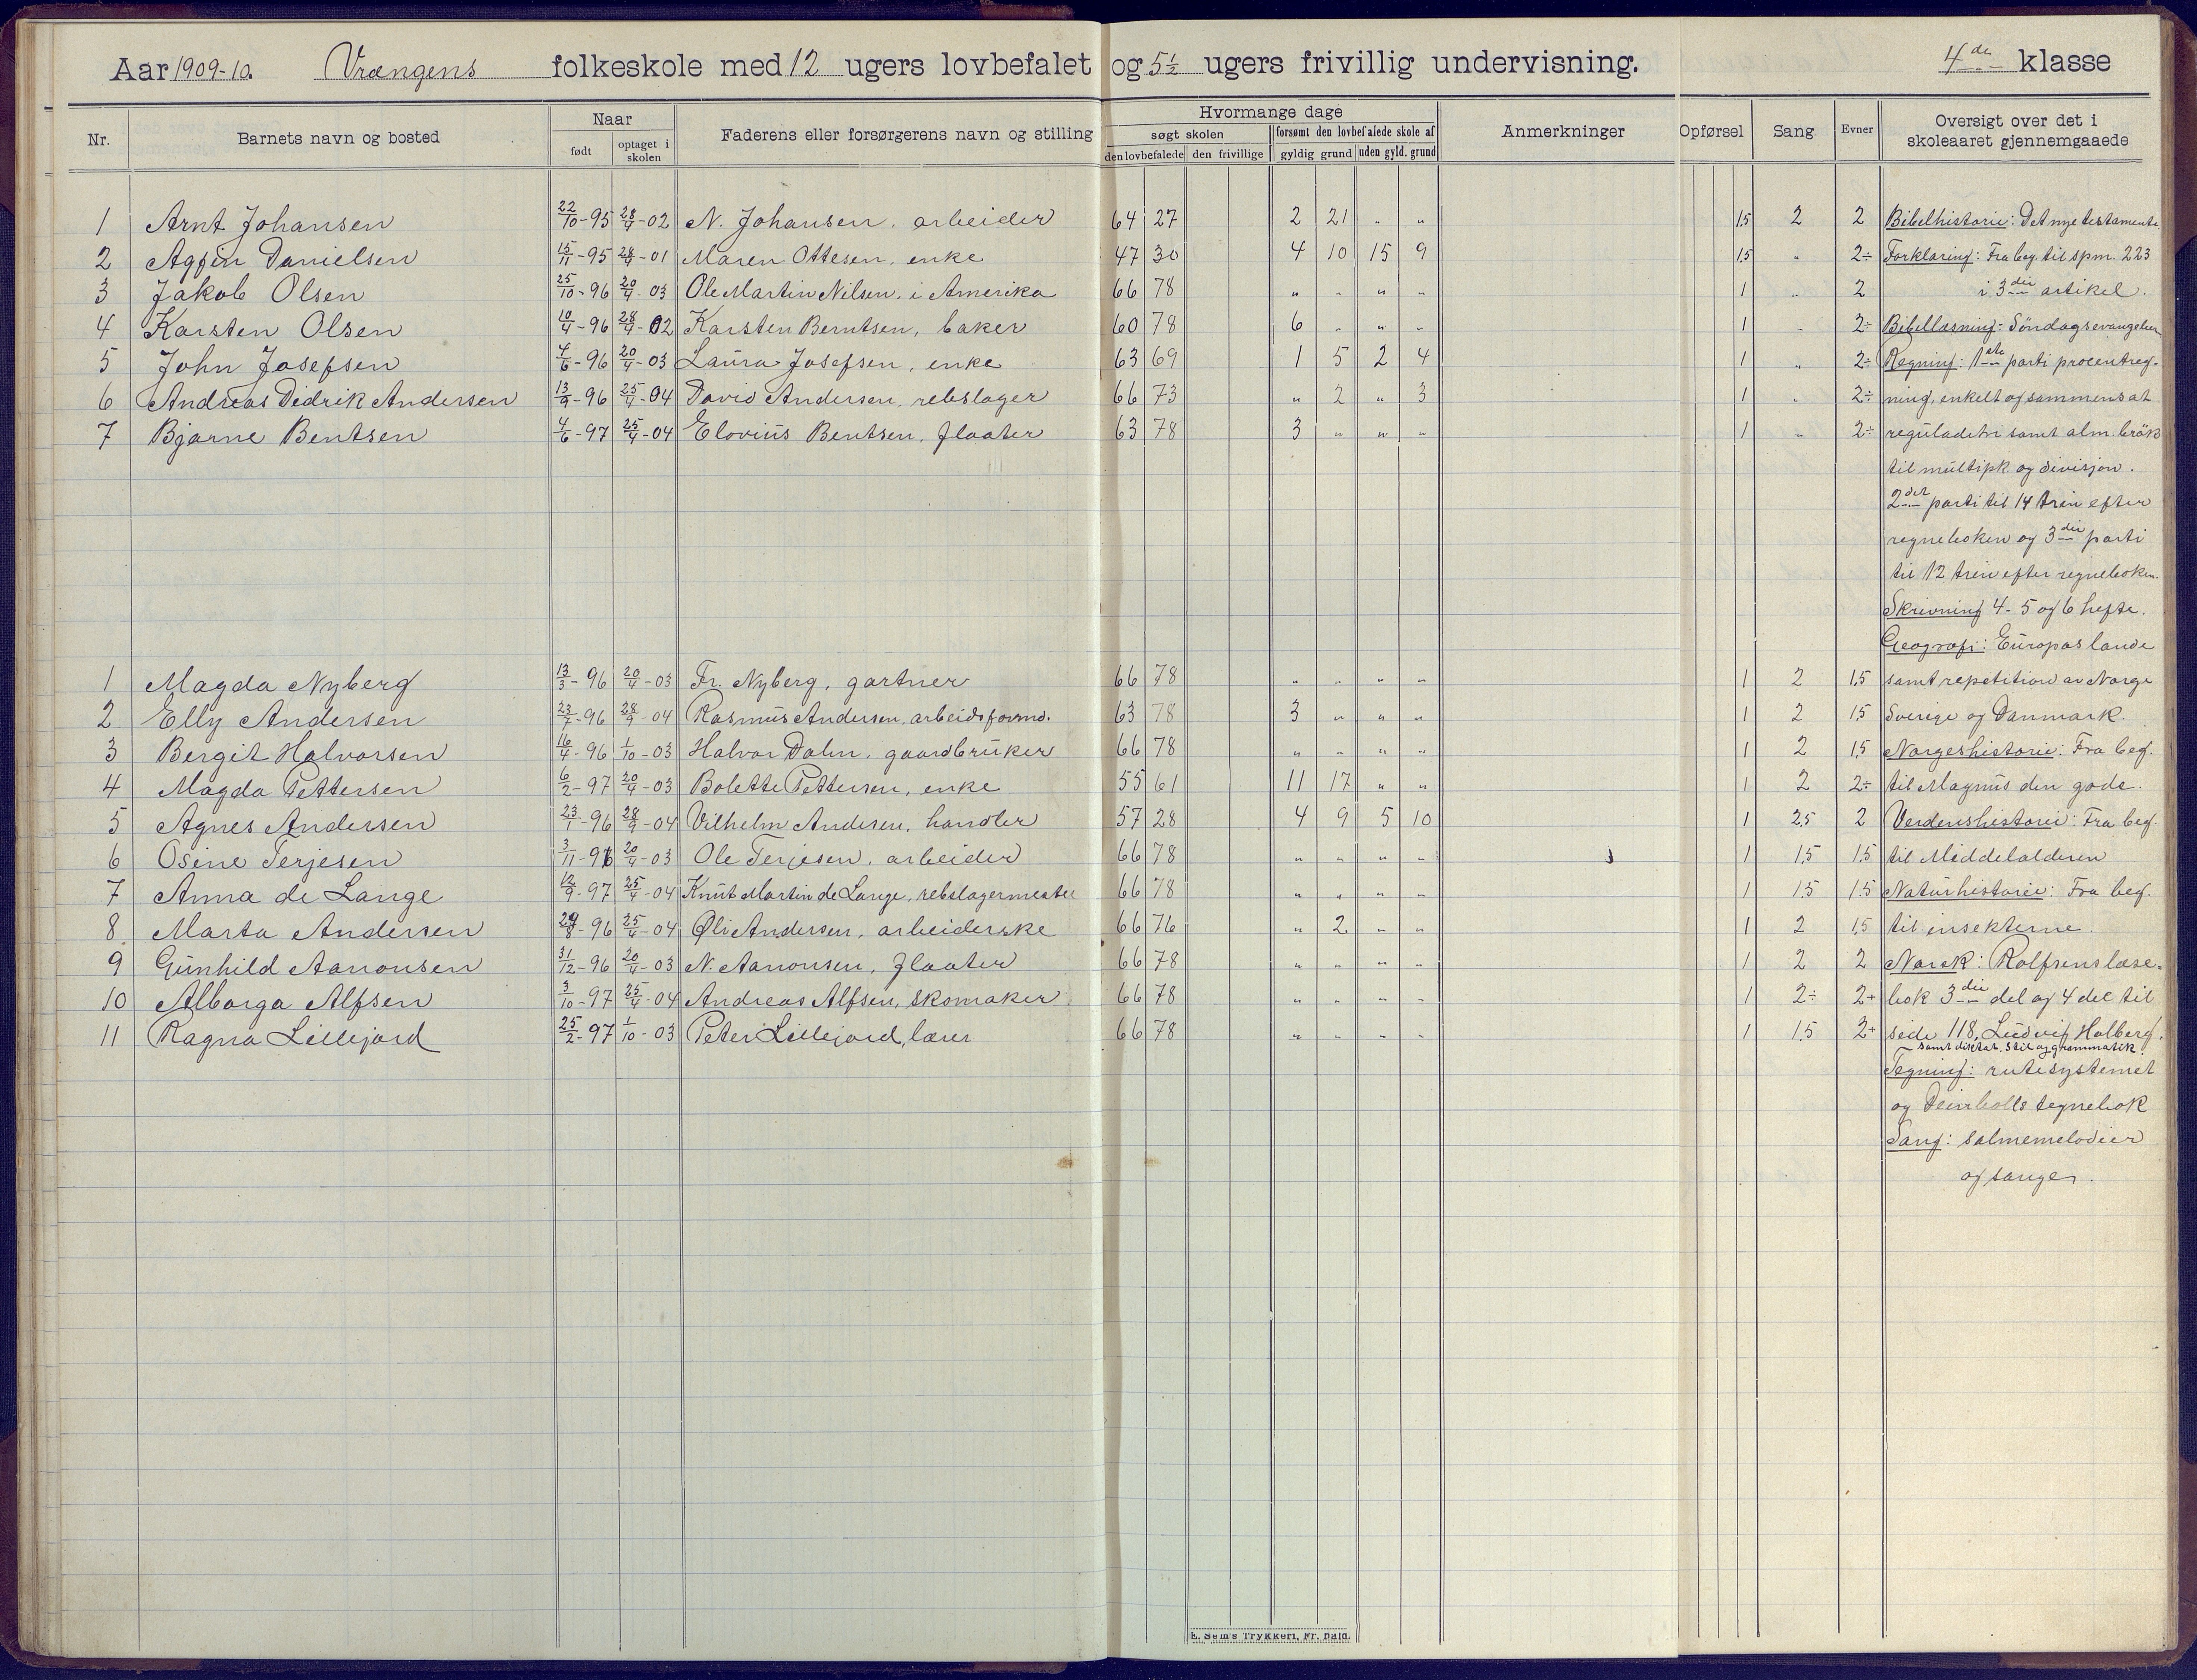 Aar 1909-10. Vrængens folkeskole med 12 ugers lovbefalet og 5½ ugers frivillig undervisning. 4de klasse
Nr. Barnets navn og bosted Naar født optaget i skolen Faderens eller forsørgerens navn og stilling Hvormange dage søgt skolen den lovbefalede den frivillige forsømt den lovbefalede skole af gyldig grund uden gyld. grund Anmerkninger Opførsel Sang Evner Oversigt over det i skoleaaret gjennemgaaede
1 Arnt Johansen 22/10-95 28/4-02 N. Johansen, arbeider 64 27 2 21 " " 1,5 2 2 Bibelhistorie: Det nye testamente
2 Danielsen 15/11-95 28/4-01 Maren Ottesen, enke 47 30 4 10 15 9 1,5 " 2÷ Forklaring: Fra beg. til spm. 223
3 Jakob Olsen 25/10-96 20/4-03 Ole Martin Nilsen, i Amerika 66 78 " " " " 1 " 2 i 3die artikel.
4 Karsten Olsen 10/4-96 28/4-02 Karsten Berntsen, baker 60 78 6 " " " 1 " 2÷ Bibellæsning: Søndagsevangelier
5 John Josefsen 4/6-96 20/4-03 Laura Josefsen, enke 63 69 1 5 2 4 1 " 2÷ Regning: 1ste parti procentreg-
6 Andreas Didrik Andersen 13/9-96 25/4-04 David Andersen, rebslager 66 73 " 2 " 3 1 " 2÷ ning, enkelt og sammensat
7 Bjarne Bentsen 4/6-97 25/4-04 Elovius Bentsen, flaater 63 78 3 " " " 1 " 2÷ reguladetri samt alm. brök
til multipk. og divisjon.
2det parti til 14 trin efter
regneboken og 3die parti
til 12 trin efter regneboken.
Skrivning 4-5 og 6 hefte.
Geografi: Europas lande
1 Magda Nyberg 13/3-96 20/4-03 Fr. Nyberg, gartner 66 78 " " " " 1 2 1,5 samt repetition av Norge
2 Elly Andersen 23/7-96 28/9-04 Rasmus Andersen, arbeidsformd. 63 78 3 " " " 1 2 1,5 Sverige og Danmark.
3 Bergit Halvorsen 16/4-96 1/10-03 Halvor Dalen, gaardbruker 66 78 " " " " 1 2 1,5 Norgeshistorie: Fra beg.
4 Magda Pettersen 6/2-97 20/4-03 Bolette Pettersen, enke 55 61 11 17 " " 1 2 2÷ til Magnus den gode.
5 Agnes Andersen 23/1-96 28/9-04 Vilhelm Andersen, handler 57 28 4 9 5 10 1 2,5 2 Verdenshistorie: Fra beg.
6 Osine Terjesen 3/11-96 20/4-03 Ole Terjesen, arbeider 66 78 " " " " 1 1,5 1,5 til Middelalderen
7 Anna de Lange 12/9-97 25/4-04 Knut Martin de Lange, rebslagermester 66 78 " " " " 1 1,5 1,5 Naturhistorie: Fra beg.
8 Marta Andersen 29/8-96 25/4-04 Oli Andersen, arbeiderske 66 76 " 2 " " 1 2 1,5 til insekterne.
9 Gunhild Aanonsen 31/12-96 20/4-03 N. Aanonsen, flaater 66 78 " " " " 1 2 2 Norsk: Rolfsens læse-
10 Alborga Alfsen 3/10-97 25/4-04 Andreas Alfsen, skomaker 66 78 " " " " 1 2÷ 2+ bok 3die del og 4 del til
11 Ragna Lillejord 25/2-97 1/10-03 Peter Lillejord, lærer 66 78 " " " " 1 1,5 2+ side 118, Ludvig Holberg,
samt diktat, stil og grammatik.
Tegning: rutesystemet
og tegnebok
Sang: salmemelodier
og sanger.
E. Sem's Trykkeri, Fr. hald.